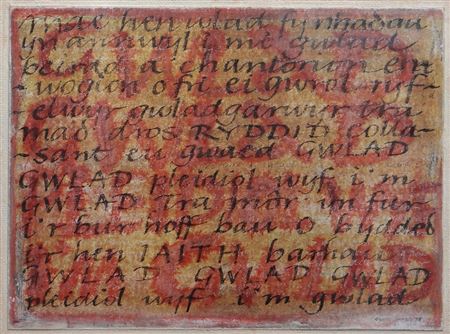 Mae hen wlad fy nhadau
yn annwyl i mi gwlad
beirdd a chantorion en
- wogion o fri ei gwrol ryf-
- elwyr gwladgarwyr tra
mad dros RYDDID colla-
- sant eu gwaed GWLAD
GWLAD pleidiol wyf i'm
GWLAD Tra mor yn fur
i'r bur hoff bau O bydded
i'r hen IAITH barhau
GWLAD GWLAD GWLAD
pleidiol wyf i'm gwlad